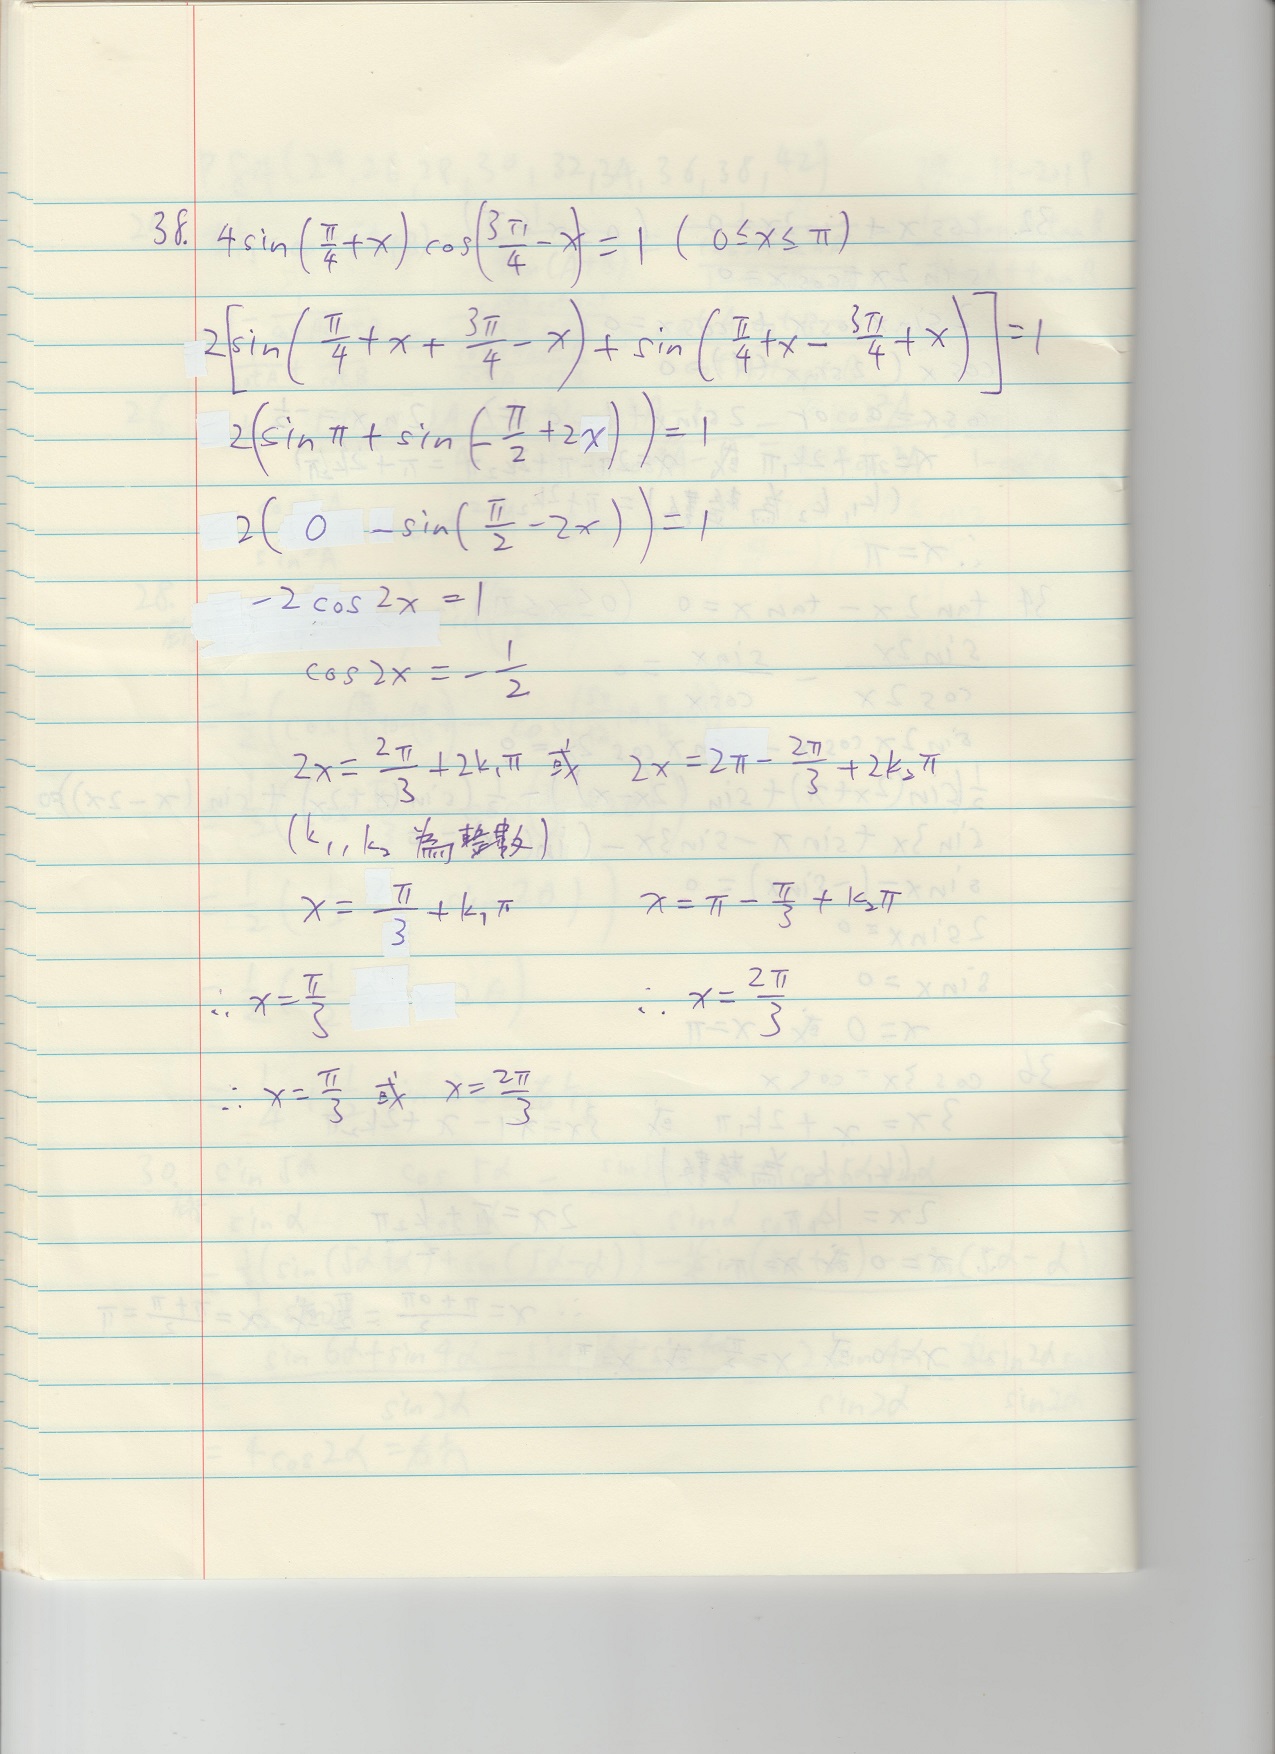 38. 4sin(π/4+x)cos(3π/4-x)=1 (0≤x≤π)
2[sin(π/4+x+3π/4-x)+sin(π/4+x-3π/4+x)]=1
2(sinπ+sin(-π/2+2x))=1
2(0-sin(π/2-2x))=1
-2cos2x=1
cos2x=-1/2
2x=2π/3+2k₁π 或 2x=2π-2π/3+2k₂π
(k₁,k₂為整數)
x=π/3+k₁π x=π-π/3+k₂π
∴x=π/3 ∴x=2π/3
∴x=π/3 或 x=2π/3